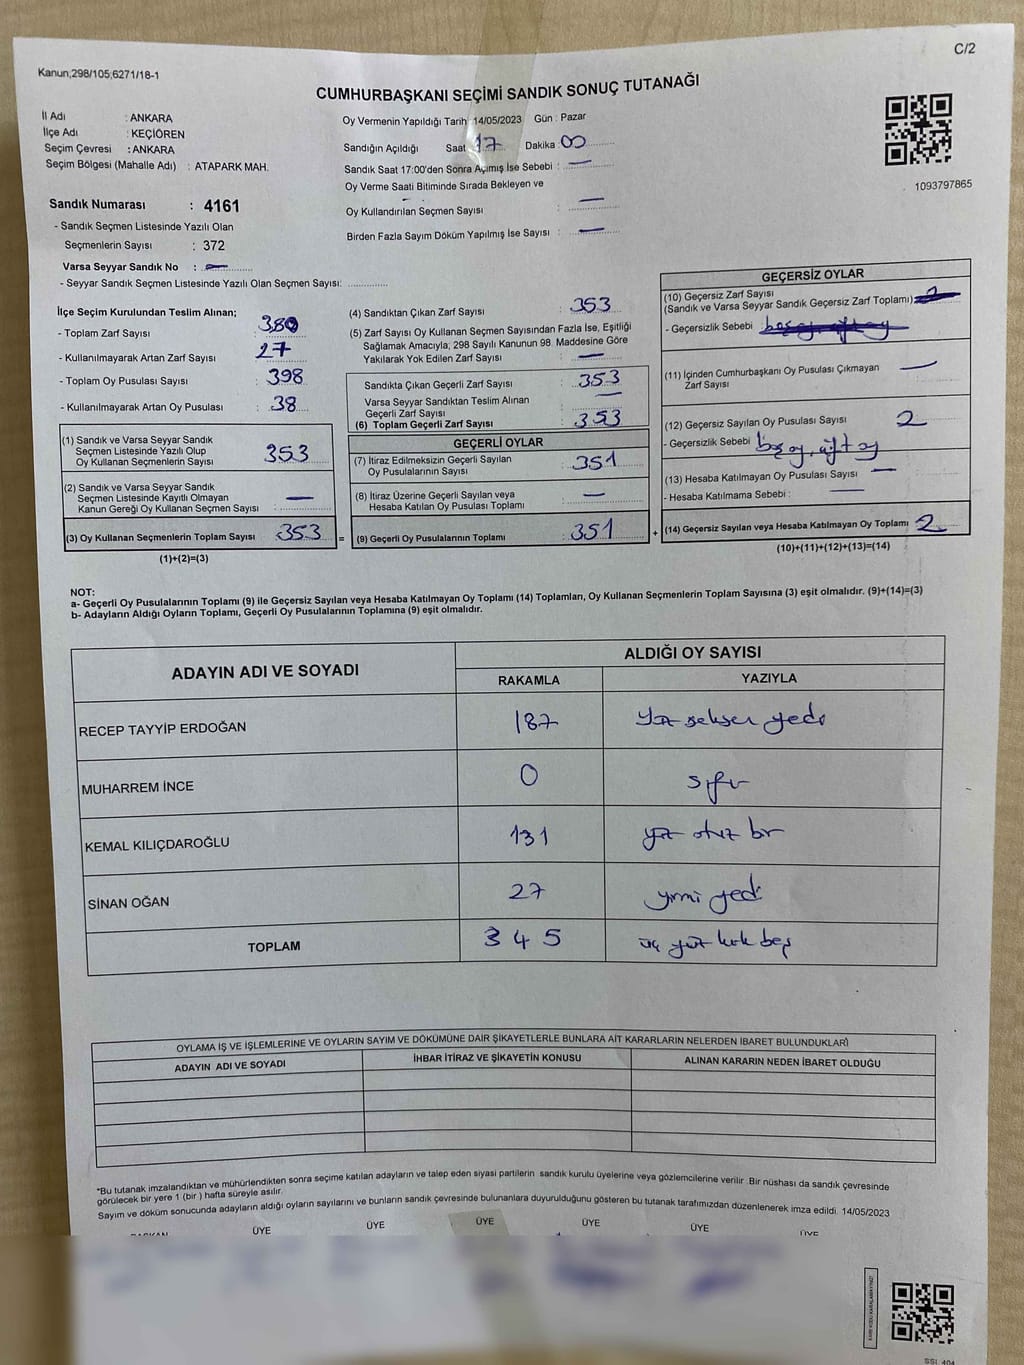 C/2
Kanun;298/105;6271/18-1
CUMHURBAŞKANI SEÇİMİ SANDIK SONUÇ TUTANAĞI
İl Adı : ANKARA
İlçe Adı : KEÇİÖREN
Seçim Çevresi : ANKARA
Seçim Bölgesi (Mahalle Adı) : ATAPARK MAH.
Sandık Numarası : 4161
- Sandık Seçmen Listesinde Yazılı Olan
Seçmenlerin Sayısı : 372
Varsa Seyyar Sandık No : —
- Seyyar Sandık Seçmen Listesinde Yazılı Olan Seçmen Sayısı: ..............
Oy Vermenin Yapıldığı Tarih 14/05/2023 Gün : Pazar
Sandığın Açıldığı Saat 17 Dakika : 00
Sandık Saat 17:00'den Sonra Açımış İse Sebebi : —
Oy Verme Saati Bitiminde Sırada Bekleyen ve
Oy Kullandırılan Seçmen Sayısı : —
Birden Fazla Sayım Döküm Yapılmış İse Sayısı : —
1093797865
İlçe Seçim Kurulundan Teslim Alınan;
- Toplam Zarf Sayısı : 380
- Kullanılmayarak Artan Zarf Sayısı : 27
- Toplam Oy Pusulası Sayısı : 398
- Kullanılmayarak Artan Oy Pusulası : 38
(1) Sandık ve Varsa Seyyar Sandık
Seçmen Listesinde Yazılı Olup
Oy Kullanan Seçmenlerin Sayısı : 353
(2) Sandık ve Varsa Seyyar Sandık
Seçmen Listesinde Kayıtlı Olmayan
Kanun Gereği Oy Kullanan Seçmen Sayısı : —
(3) Oy Kullanan Seçmenlerin Toplam Sayısı : 353 =
(1)+(2)=(3)
(4) Sandıktan Çıkan Zarf Sayısı : 353
(5) Zarf Sayısı Oy Kullanan Seçmen Sayısından Fazla İse, Eşitliği
Sağlamak Amacıyla; 298 Sayılı Kanunun 98. Maddesine Göre
Yakılarak Yok Edilen Zarf Sayısı : —
Sandıkta Çıkan Geçerli Zarf Sayısı : 353
Varsa Seyyar Sandıktan Teslim Alınan
Geçerli Zarf Sayısı : —
(6) Toplam Geçerli Zarf Sayısı : 353
GEÇERLİ OYLAR
(7) İtiraz Edilmeksizin Geçerli Sayılan
Oy Pusulalarının Sayısı : 351
(8) İtiraz Üzerine Geçerli Sayılan veya
Hesaba Katılan Oy Pusulası Toplamı : —
(9) Geçerli Oy Pusulalarının Toplamı : 351 +
GEÇERSİZ OYLAR
(10) Geçersiz Zarf Sayısı
(Sandık ve Varsa Seyyar Sandık Geçersiz Zarf Toplamı) : 2
- Geçersizlik Sebebi : boş oy, çift oy
(11) İçinden Cumhurbaşkanı Oy Pusulası Çıkmayan
Zarf Sayısı —
(12) Geçersiz Sayılan Oy Pusulası Sayısı : 2
- Geçersizlik Sebebi : boş oy, çift oy
(13) Hesaba Katılmayan Oy Pusulası Sayısı : —
- Hesaba Katılmama Sebebi : —
(14) Geçersiz Sayılan veya Hesaba Katılmayan Oy Toplamı : 2
(10)+(11)+(12)+(13)=(14)
NOT:
a- Geçerli Oy Pusulalarının Toplamı (9) ile Geçersiz Sayılan veya Hesaba Katılmayan Oy Toplamı (14) Toplamları, Oy Kullanan Seçmenlerin Toplam Sayısına (3) eşit olmalıdır. (9)+(14)=(3)
b- Adayların Aldığı Oyların Toplamı, Geçerli Oy Pusulalarının Toplamına (9) eşit olmalıdır.
ADAYIN ADI VE SOYADI
ALDIĞI OY SAYISI
RAKAMLA YAZIYLA
RECEP TAYYİP ERDOĞAN 187 yüz seksen yedi
MUHARREM İNCE 0 sıfır
KEMAL KILIÇDAROĞLU 131 yüz otuz bir
SİNAN OĞAN 27 yirmi yedi
TOPLAM 345 üç yüz kırk beş
OYLAMA İŞ VE İŞLEMLERİNE VE OYLARIN SAYIM VE DÖKÜMÜNE DAİR ŞİKAYETLERLE BUNLARA AİT KARARLARIN NELERDEN İBARET BULUNDUKLARI
ADAYIN ADI VE SOYADI İHBAR İTİRAZ VE ŞİKAYETİN KONUSU ALINAN KARARIN NEDEN İBARET OLDUĞU
*Bu tutanak imzalandıktan ve mühürlendikten sonra seçime katılan adayların ve talep eden siyasi partilerin sandık kurulu üyelerine veya gözlemcilerine verilir .Bir nüshası da sandık çevresinde
görülecek bir yere 1 (bir ) hafta süreyle asılır.
Sayım ve döküm sonucunda adayların aldığı oyların sayılarını ve bunların sandık çevresinde bulunanlara duyurulduğunu gösteren bu tutanak tarafımızdan düzenlenerek imza edildi. 14/05/2023
BAŞKAN ÜYE ÜYE ÜYE ÜYE ÜYE ÜYE